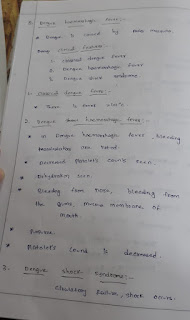 3. Dengue haemorrhagic fever:-
* Dengue is caused by
Dengue clinical features:-
1. classical dengue fever
2. Dengue haemorrhagic fever
3. Dengue shock syndrome.
1. classical dengue fever:-
* There is fever
2. Dengue haemorrhagic fever:-
* In Dengue haemorrhagic fever, bleeding
are noted.
* Decreased platelet's count's
* Dehydration
* Bleeding from nose, bleeding from
the gums, mucus membrane of
mouth.
*
* Platelet's count is decreased.
3. Dengue shock syndrome:-
circulatory failure, shock occurs.